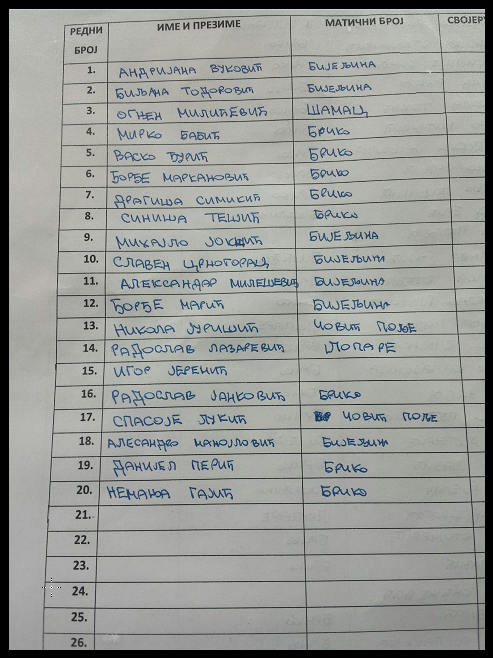 РЕДНИ БРОЈ ИМЕ И ПРЕЗИМЕ МАТИЧНИ БРОЈ СВОЈЕРУ
1. АНДРИЈАНА ВУКОВИЋ БИЈЕЉИНА
2. БИЉАНА ТОДОРОВИЋ БИЈЕЉИНА
3. ОГНЕН МИЛИЋЕВИЋ ШАМАЦ
4. МИРКО БАБИЋ БРЧКО
5. ВАСКО ЂУРИЋ БРЧКО
6. ЂОРЂЕ МАРКАНОВИЋ БРЧКО
7. ДРАГИША СИМИКИЋ БРЧКО
8. СИНИША ТЕШИЋ БРЧКО
9. МИХАЈЛО БИЈЕЉИНА
10. СЛАВЕН ЦРНОГОРАЦ БИЈЕЉИНА
11. АЛЕКСАНДАР МИЛЕШЕВИЋ БИЈЕЉИНА
12. ЂОРЂЕ МАРИЋ БИЈЕЉИНА
13. НИКОЛА ЈУРИШИЋ ЧОВИЋ ПОЉЕ
14. РАДОСЛАВ ЛАЗАРЕВИЋ ЛОПАРЕ
15. ИГОР ЈЕРЕНИЋ
16. РАДОСЛАВ ЈАНКОВИЋ БРЧКО
17. СПАСОЈЕ ЛУКИЋ ЧОВИЋ ПОЉЕ
18. АЛЕСАНДРО МАНОЈЛОВИЋ БИЈЕЉИНА
19. ДАНИЈЕЛ ПЕРИЋ БРЧКО
20. НЕМАЊА ГАЈИЋ БРЧКО
21.
22.
23.
24.
25.
26.